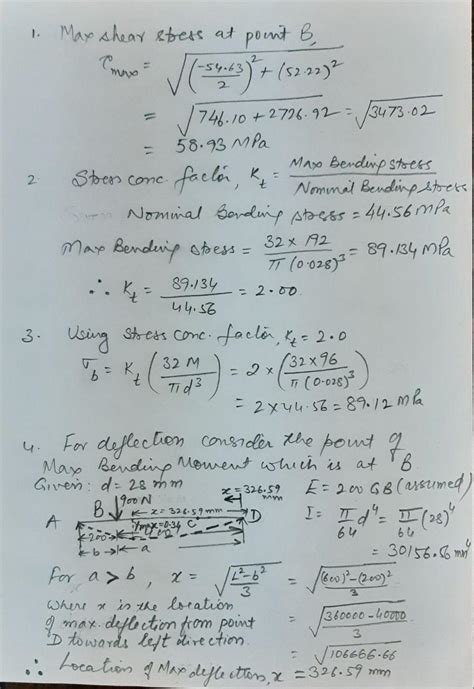 1. Max shear stress at point B,
τmax = √((-54.63/2)² + (52.22)²)
= √(746.10 + 2726.92) = √3473.02
= 58.93 MPa
2 Stress conc. factor, Kt = Max Bending stress / Nominal Bending stress
Nominal Bending stress = 44.56 MPa
Max Bending stress = 32 × 192 / π (0.028)³ = 89.134 MPa
∴ Kt = 89.134 / 44.56 = 2.00
3. Using stress conc. factor, Kt = 2.0
σb = Kt (32 M / πd³) = 2 × (32×96 / π (0.028)³)
= 2 × 44.56 = 89.12 MPa
4. For deflection consider the point of
Max Bending Moment which is at B
Given: d = 28 mm x = 326.59 mm E = 200 GB (assumed)
B 900 N x = 326.59 mm I = π/64 d⁴ = π/64 (28)⁴
A C D
200
b a
= 30156.56 mm⁴
For a > b, x = √((L² - b²)/3) = √(((600)² - (200)²)/3)
where x is the location
of max. deflection from point = √((360000 - 40000)/3)
D towards left direction. = √106666.66
∴ Location of Max deflection, x = 326.59 mm